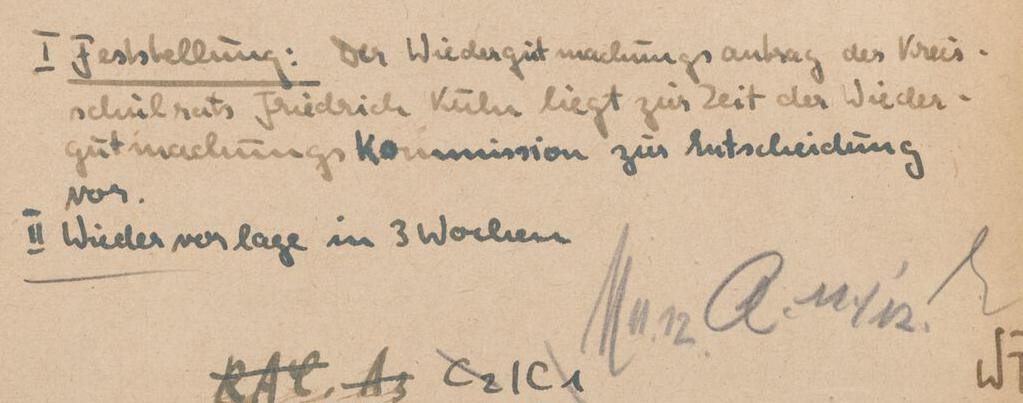 I Feststellung: Der Wiedergutmachungsantrag des Kreis-
schulrats Friedrich Kuhn liegt zur Zeit der Wieder-
gutmachungskommission zur Entscheidung
vor.
II Wiedervorlage in 3 Wochen
11.12.
C2/C1